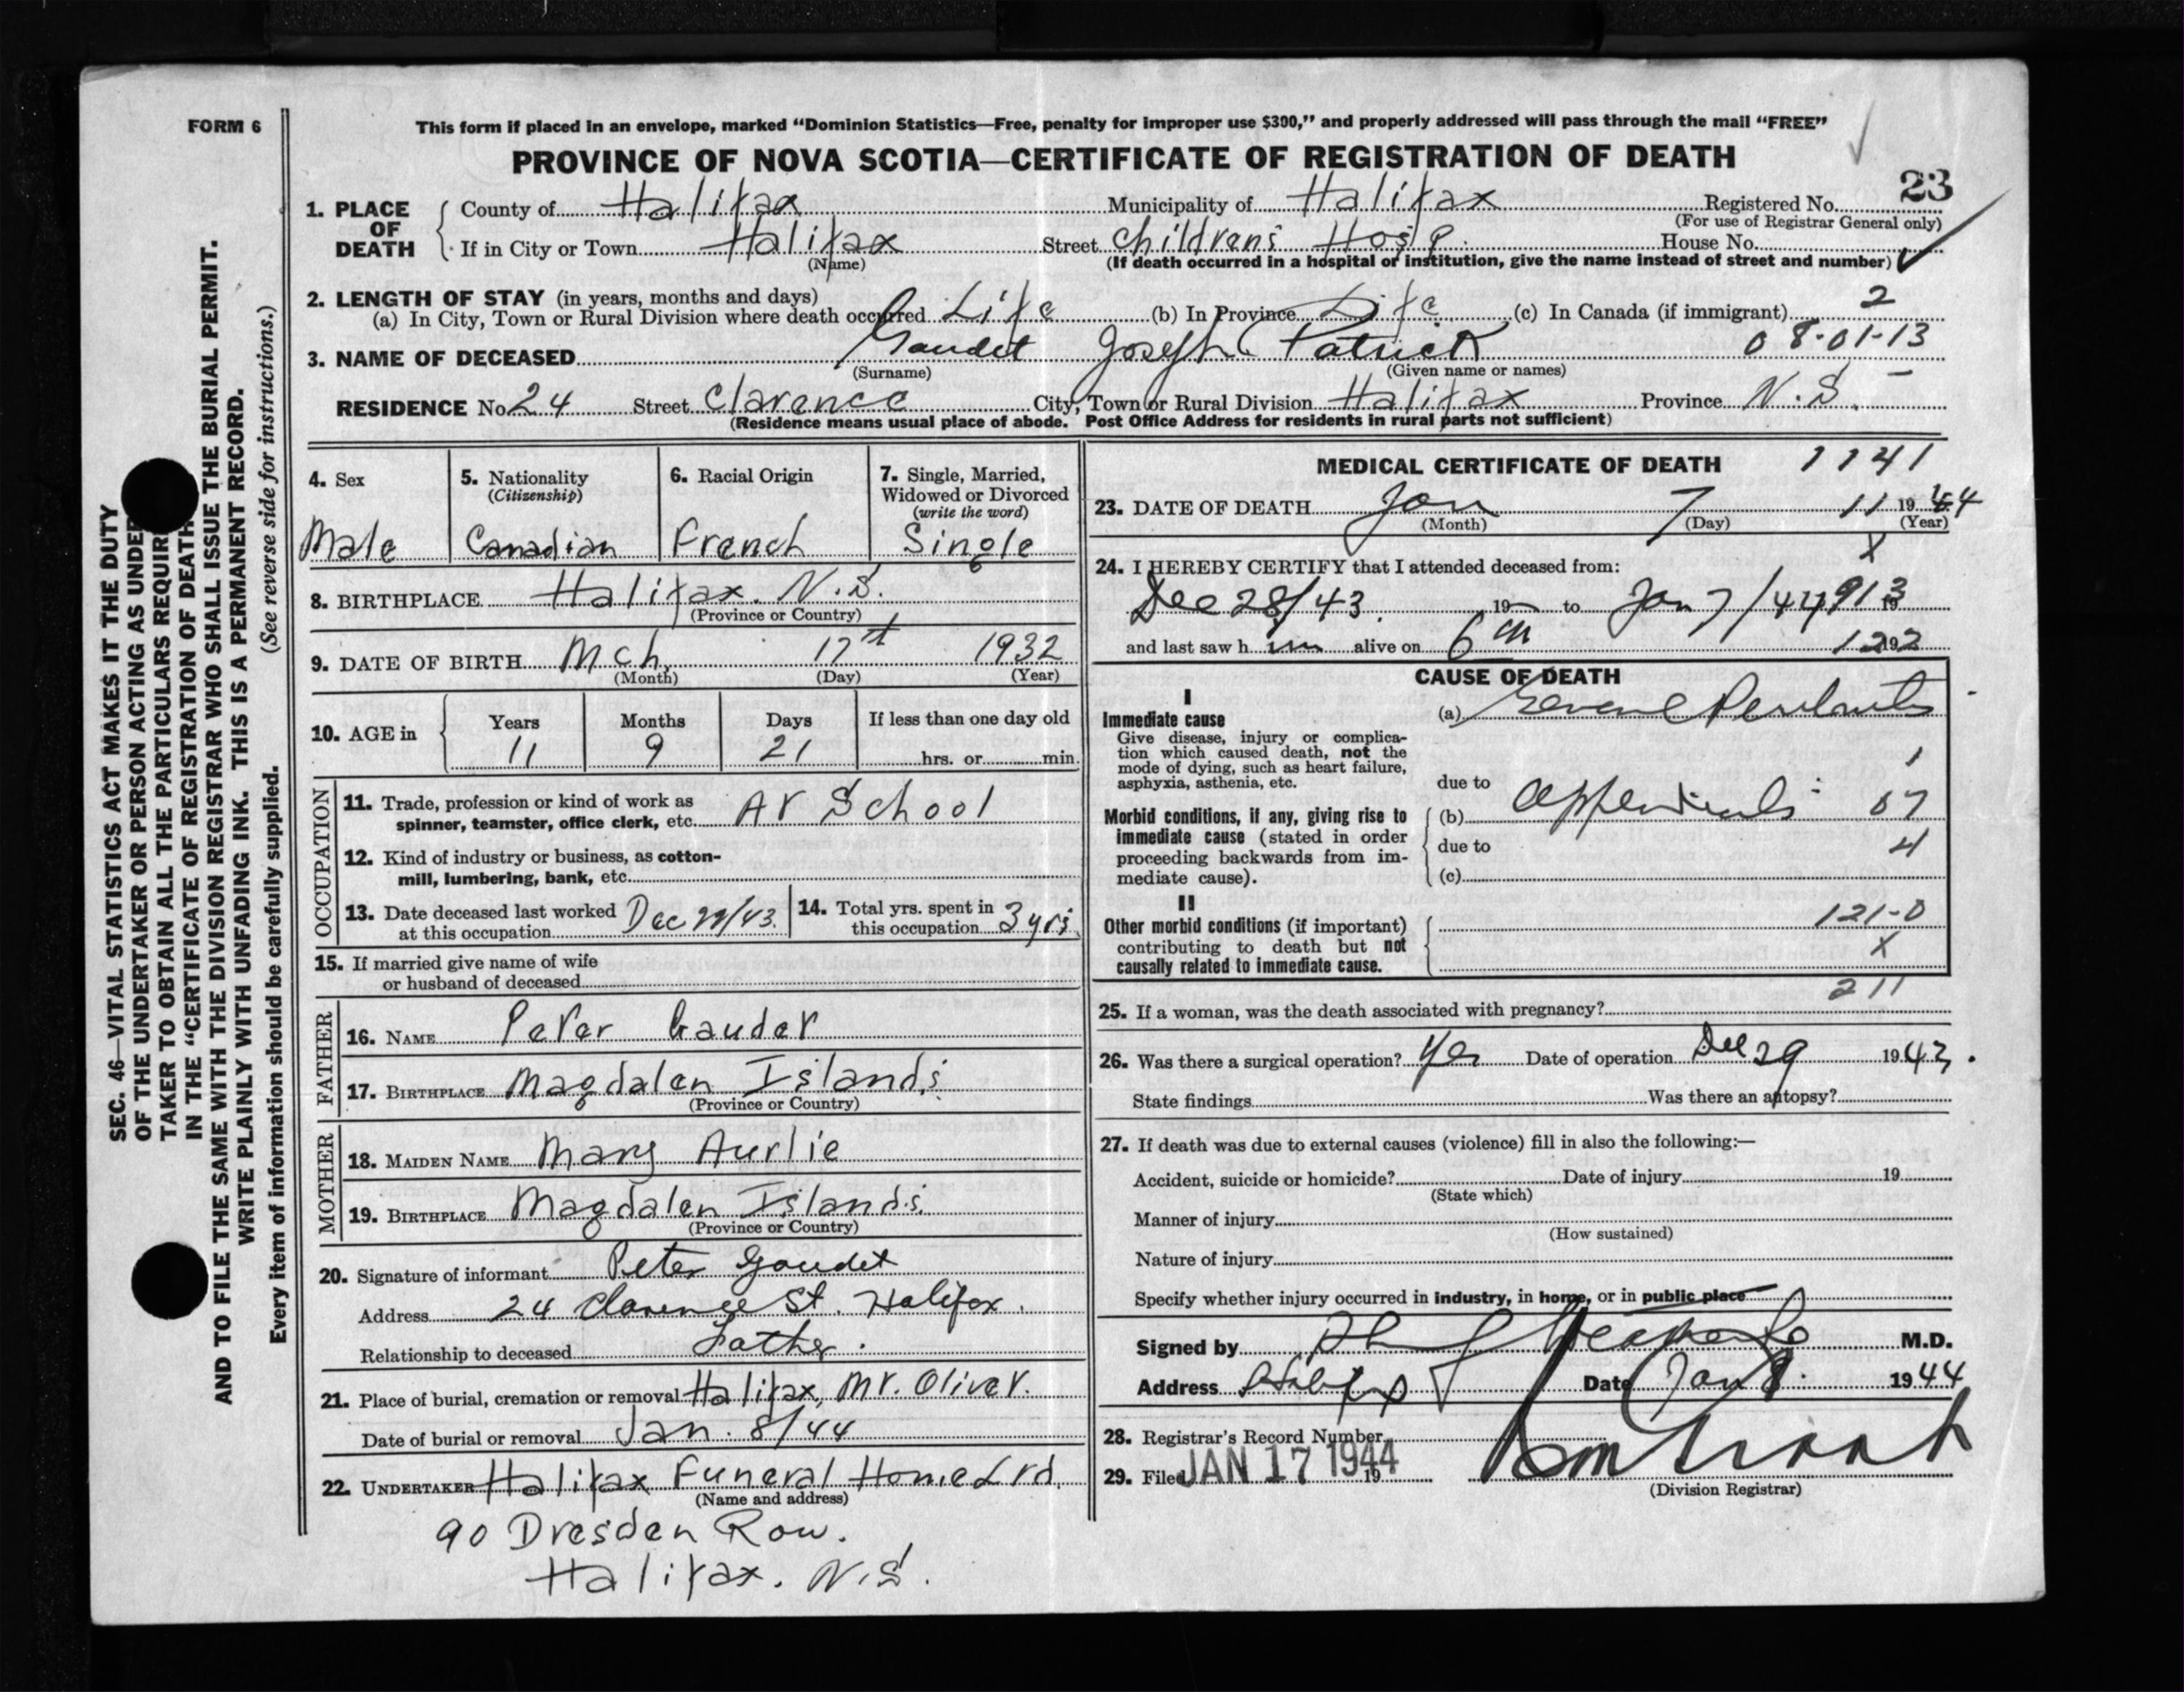 FORM 6
This form if placed in an envelope, marked “Dominion Statistics—Free, penalty for improper use $300,” and properly addressed will pass through the mail “FREE”
PROVINCE OF NOVA SCOTIA—CERTIFICATE OF REGISTRATION OF DEATH
23
1. PLACE OF DEATH
County of Halifax Municipality of Halifax Registered No.
(For use of Registrar General only)
If in City or Town Halifax Street Childrens Hosp. House No.
(Name) (If death occurred in a hospital or institution, give the name instead of street and number)
2. LENGTH OF STAY (in years, months and days)
(a) In City, Town or Rural Division where death occurred Life (b) In Province Life (c) In Canada (if immigrant) 2
3. NAME OF DECEASED Gaudet Joseph Patrick 08-01-13
(Surname) (Given name or names)
RESIDENCE No 24 Street Clarence City, Town or Rural Division Halifax Province N.S.
(Residence means usual place of abode. Post Office Address for residents in rural parts not sufficient)
4. Sex
Male
5. Nationality
(Citizenship)
Canadian
6. Racial Origin
French
7. Single, Married,
Widowed or Divorced
(write the word)
Single
8. BIRTHPLACE Halifax. N.S.
(Province or Country)
9. DATE OF BIRTH Mch. 17 1932
(Month) (Day) (Year)
10. AGE in
Years Months Days If less than one day old
11 9 21 hrs. or min.
OCCUPATION
11. Trade, profession or kind of work as
spinner, teamster, office clerk, etc. At School
12. Kind of industry or business, as cotton-
mill, lumbering, bank, etc.
13. Date deceased last worked
at this occupation Dec /43.
14. Total yrs. spent in
this occupation 3 yrs.
15. If married give name of wife
or husband of deceased
FATHER
16. NAME Peter Gaudet
17. BIRTHPLACE Magdalen Islands
(Province or Country)
MOTHER
18. MAIDEN NAME Mary Aurlie
19. BIRTHPLACE Magdalen Islands.
(Province or Country)
20. Signature of informant Peter Gaudet
Address 24 Clarence St. Halifax.
Relationship to deceased Father.
21. Place of burial, cremation or removal Halifax, Mt. Olivet.
Date of burial or removal Jan. 8/44
22. UNDERTAKER Halifax Funeral Home Ltd.
(Name and address)
90 Dresden Row.
Halifax. N.S.
MEDICAL CERTIFICATE OF DEATH 1141
23. DATE OF DEATH Jan 7 11 1944
(Month) (Day) (Year)
X
24. I HEREBY CERTIFY that I attended deceased from:
Dec 28/43. 19 to Jan 7/44 913 19
and last saw him alive on 6th 122 19
CAUSE OF DEATH
I
Immediate cause
Give disease, injury or complica-
tion which caused death, not the
mode of dying, such as heart failure,
asphyxia, asthenia, etc.
(a) Peritonitis
1
due to
Morbid conditions, if any, giving rise to
immediate cause (stated in order
proceeding backwards from im-
mediate cause).
(b) Appendicitis 07
due to 4
(c)
II
Other morbid conditions (if important)
contributing to death but not
causally related to immediate cause.
121-0
X
211
25. If a woman, was the death associated with pregnancy?
26. Was there a surgical operation? Yes Date of operation Dec 29 1943.
State findings Was there an autopsy?
27. If death was due to external causes (violence) fill in also the following:—
Accident, suicide or homicide? Date of injury 19
(State which)
Manner of injury
(How sustained)
Nature of injury
Specify whether injury occurred in industry, in home, or in public place
Signed by M.D.
Address Halifax Date Jan 8. 1944
28. Registrar's Record Number
29. Filed JAN 17 1944 19
(Division Registrar)
SEC. 46—VITAL STATISTICS ACT MAKES IT THE DUTY
OF THE UNDERTAKER OR PERSON ACTING AS UNDER
TAKER TO OBTAIN ALL THE PARTICULARS REQUIR
IN THE “CERTIFICATE OF REGISTRATION OF DEATH
AND TO FILE THE SAME WITH THE DIVISION REGISTRAR WHO SHALL ISSUE THE BURIAL PERMIT.
WRITE PLAINLY WITH UNFADING INK. THIS IS A PERMANENT RECORD.
Every item of information should be carefully supplied. (See reverse side for instructions.)